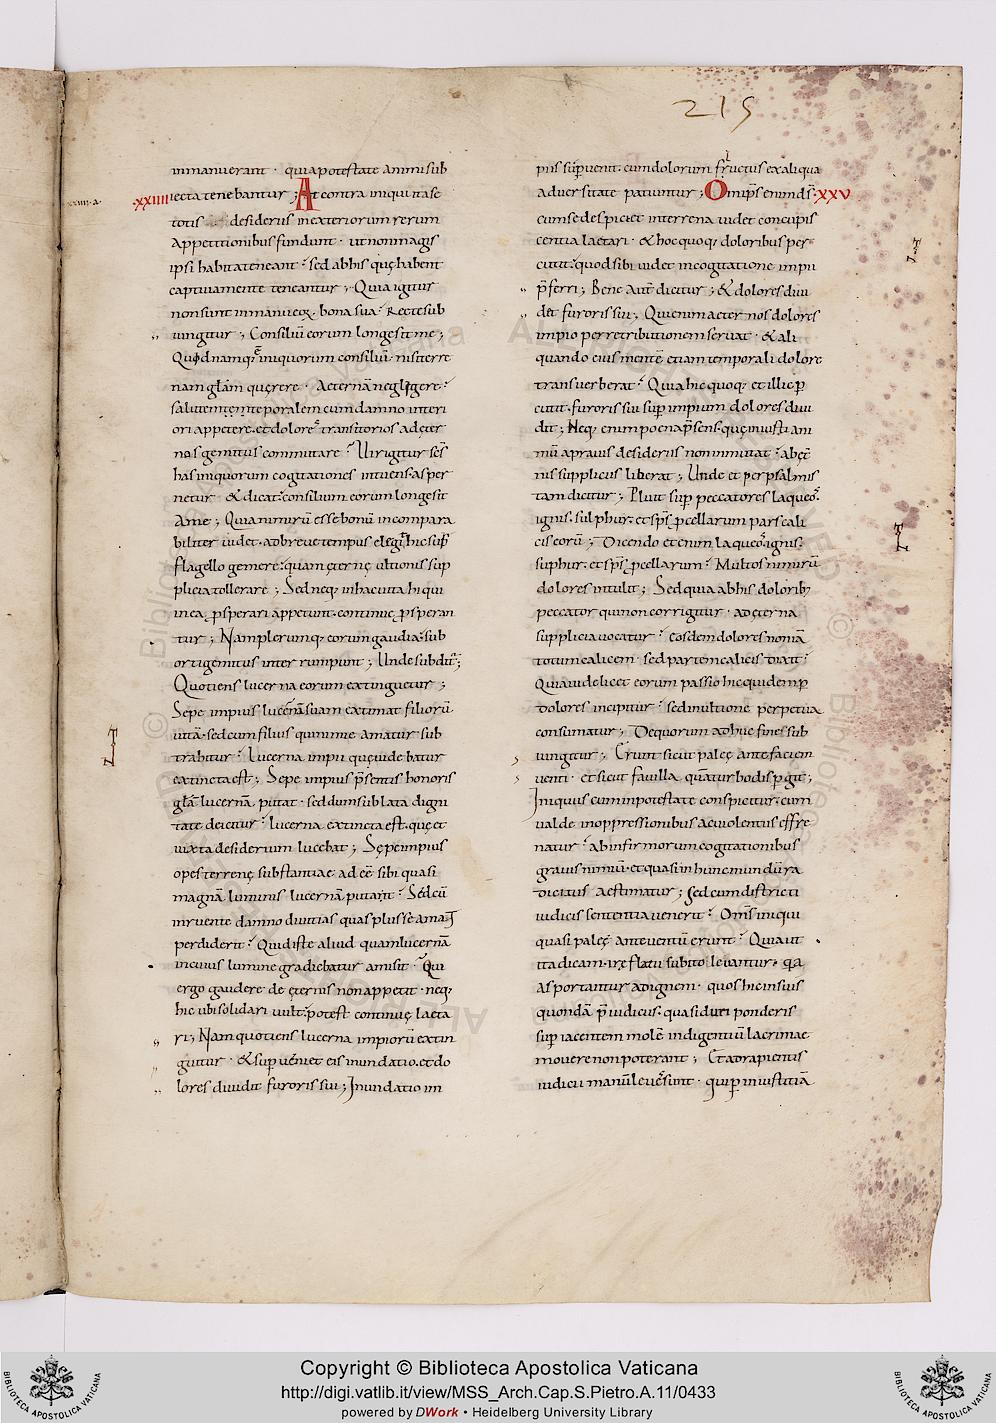 215
inmanuerant · quia potestate animi sub
xxiiii iecta tenebantur ; At contra iniquitase
totis desideriis in exteriorum rerum
appetitionibus fundunt · ut non magis
ipsi habita teneant · sed ab his quę habent
captiva mente teneantur ; Quia igitur
non sunt in manu eorum bona sua · Recte sub
iungitur ; Consiliū eorum longe sit me ;
Quod namq; ē iniquorum consiliū · nisi terre
nam glām quęrere · Aeternā neglegere ·
salutem temporalem cum damno interi
ori appetere · et dolores transitorios ad ęter
nos gemitus commutare · Dirigitur ser
has iniquorum cogitationes intuens · asper
netur · & dicat · consilium eorum longe sit
a me ; Quia nimirū esse bonū incompara
biliter uidet · ad breue tempus elegit hic sub
flagello gemere · quam ęternę ultionis sup
plicia tollerare ; Sed neq; in hac uita hi qui
in ea prosperari appetunt · continuę prosperan
tur ; Nam plerumq; eorum gaudia · sub
orti gemitus interrumpunt ; Unde subdit~ ;
Quotiens lucerna eorum extinguetur ;
Sepe impius lucernā suam extimat filiorū
uitā · sed cum filius qui nimie amatur sub
trahitur · Lucerna impii quę uidebatur
extincta est ; Sepe impius p̄sentis honoris
glā lucernā putat · sed dum sublata digni
tate deicitur · lucerna extincta est · quę ei
iuxta desiderium lucebat ; Sępe impius
opes terrenę substantiae · ad eē sibi quasi
magnā luminis lucernā putant · Sed cū
inruente damno diuitias quas plus se amat
perdiderit · Quid iste aliud quam lucernā
in cuius lumine gradiebatur amisit · Qui
ergo gaudere de ęternis non appetit · neq;
hic ubi solidari uult · potest continuę laeta
ri ; Nam quotiens lucerna impiorū extin
guitur · & superueniet eis inundatio · et do
lores diuidit furoris sui ; Inundatio im
piis superuenit · cum dolorum fructus ex aliqua
aduersitate patiuntur ; Omip̄s enim ds̄ · xxv
cum se despiciet in terrena uidet concupis
centia laetari · & hoc quoq; doloribus per
cutit · quod sibi uidet in cogitatione impii
p̄ferri ; Bene autē dicitur ; & dolores diui
det furoris sui ; Qui enim aeternos dolores
impio per retributionem seruat · & ali
quando eius mentē etiam temporali dolore
transuerberat · Quia hic quoq; et illic per
cutit · furoris sui super impium dolores diui
dit ; Neq; enim poena p̄sens · quę iniusti ani
mū a prauis desideriis non inmutat · ab ęter
nis suppliciis liberat ; Unde et per psalmis
tam dicitur ; Pluit super peccatores laqueos
ignis · sulphur · et sp̄s procellarum pars cali
cis eorū ; Dicendo etenim laqueos · ignis ·
sulphur · et sp̄s procellarum · Multos nimirū
dolores intulit ; Sed quia ab his dolorib;
peccator qui non corrigitur · ad ęterna
supplicia uocatur · eosdem dolores non iā
totum calicem · sed partem calicis dixit ·
Quia uidelicet eorum passio hic quidem per
dolores incipitur · sed in ultione perpetua
consumatur ; De quorum adhuc fine sub
iungitur ; Erunt sicut paleę ante faciem
uenti · et sicut fauilla quā turbo dispergit ;
Iniquus cum in potestate conspicitur · cum
ualde in oppressionibus ac uiolentus effre
natur · ab infirmorum cogitationibus
grauis nimiū · et quasi in hunc mundū ra
dicitus aestimatur ; Sed cum districti
iudicis sententia uenerit · Om̄s iniqui
quasi paleę ante uentū erunt · Quia ut
ita dicam · irę flatu subito leuantur · qa
asportantur ad ignem · quos hic in suis
quondā p̄iudiciis · quasi duri ponderis
super iacentem molē indigentiū lacrimae
mouere non poterant ; Et ad rapientis
iudicii manū leues sunt · qui per iniustitiā
Copyright © Biblioteca Apostolica Vaticana
http://digi.vatlib.it/view/MSS_Arch.Cap.S.Pietro.A.11/0433
powered by DWork • Heidelberg University Library
BIBLIOTECA APOSTOLICA VATICANA
BIBLIOTECA APOSTOLICA VATICANA